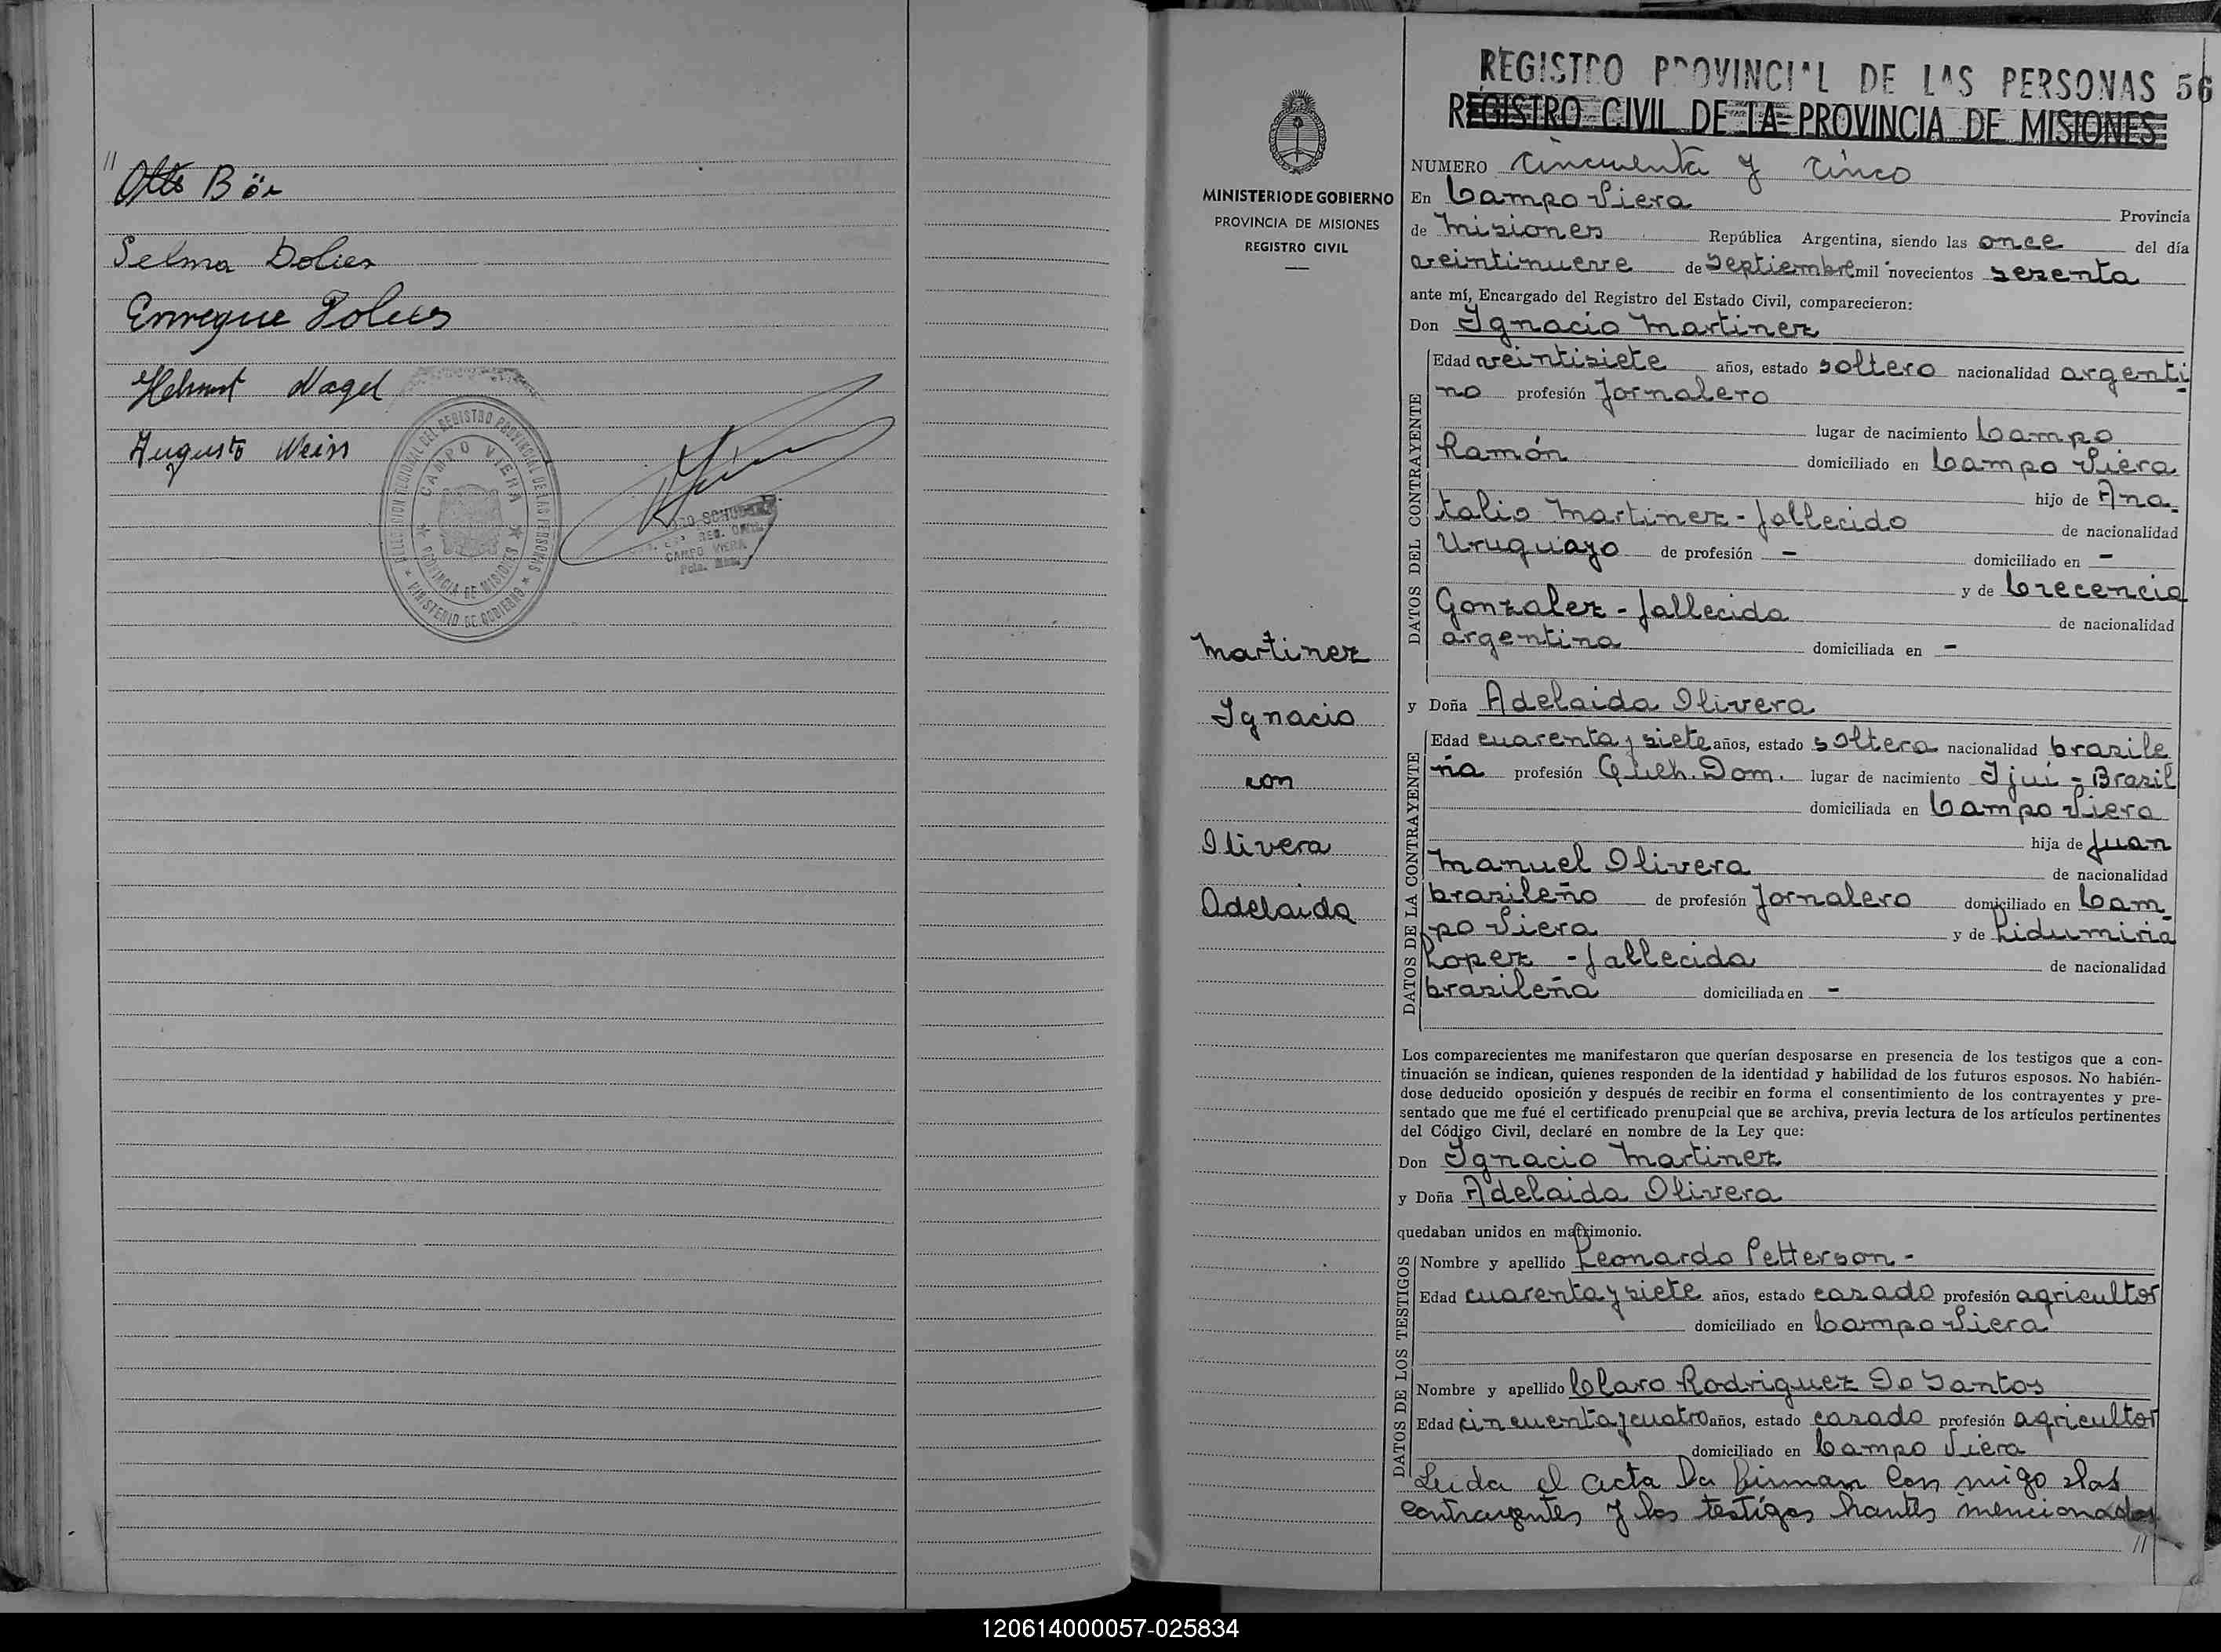 //
Otto Bör
Selma Dolies
Enrreque Polus
Helmut Nagel
Augusto Weiss
DELEGACION REGIONAL DEL REGISTRO PROVINCIAL DE LAS PERSONAS
CAMPO VIERA
PROVINCIA DE MISIONES
MINISTERIO DE GOBIERNO
CAMPO VIERA
Pcia. Mnes.
MINISTERIO DE GOBIERNO
PROVINCIA DE MISIONES
REGISTRO CIVIL
Martinez
Ignacio
con
Olivera
Adelaida
REGISTRO PROVINCIAL DE LAS PERSONAS 56
REGISTRO CIVIL DE LA PROVINCIA DE MISIONES
NUMERO Cincuenta y Cinco
En Campo Viera Provincia
de Misiones República Argentina, siendo las once del día
veintinueve de Septiembre mil novecientos sesenta
ante mí, Encargado del Registro del Estado Civil, comparecieron:
Don Ignacio Martinez
DATOS DEL CONTRAYENTE
Edad veintisiete años, estado soltero nacionalidad argenti
no profesión Jornalero
lugar de nacimiento Campo
Ramón domiciliado en Campo Viera
hijo de Ana
talio Martinez - fallecido de nacionalidad
Uruguayo de profesión - domiciliado en -
y de Crecencia
Gonzalez - fallecida de nacionalidad
argentina domiciliada en -
y Doña Adelaida Olivera
DATOS DE LA CONTRAYENTE
Edad cuarenta y siete años, estado soltera nacionalidad brasile
ña profesión Queh. Dom. lugar de nacimiento Ijuí - Brasil
domiciliada en Campo Viera
hija de Juan
Manuel Olivera de nacionalidad
brasileño de profesión Jornalero domiciliado en Cam
po Viera y de Lidumiria
Lopez - fallecida de nacionalidad
brasileña domiciliada en -
Los comparecientes me manifestaron que querían desposarse en presencia de los testigos que a con-
tinuación se indican, quienes responden de la identidad y habilidad de los futuros esposos. No habién-
dose deducido oposición y después de recibir en forma el consentimiento de los contrayentes y pre-
sentado que me fué el certificado prenupcial que se archiva, previa lectura de los artículos pertinentes
del Código Civil, declaré en nombre de la Ley que:
Don Ignacio Martinez
y Doña Adelaida Olivera
quedaban unidos en matrimonio.
DATOS DE LOS TESTIGOS
Nombre y apellido Leonardo Petterson -
Edad cuarenta y siete años, estado casado profesión agricultor
domiciliado en Campo Viera
Nombre y apellido Claro Rodriguez Do Santos
Edad cincuenta y cuatro años, estado casado profesión agricultor
domiciliado en Campo Viera
Leida el acta La firman Con migo los
contrayentes y los testigos hantes mencionados
//
120614000057-025834